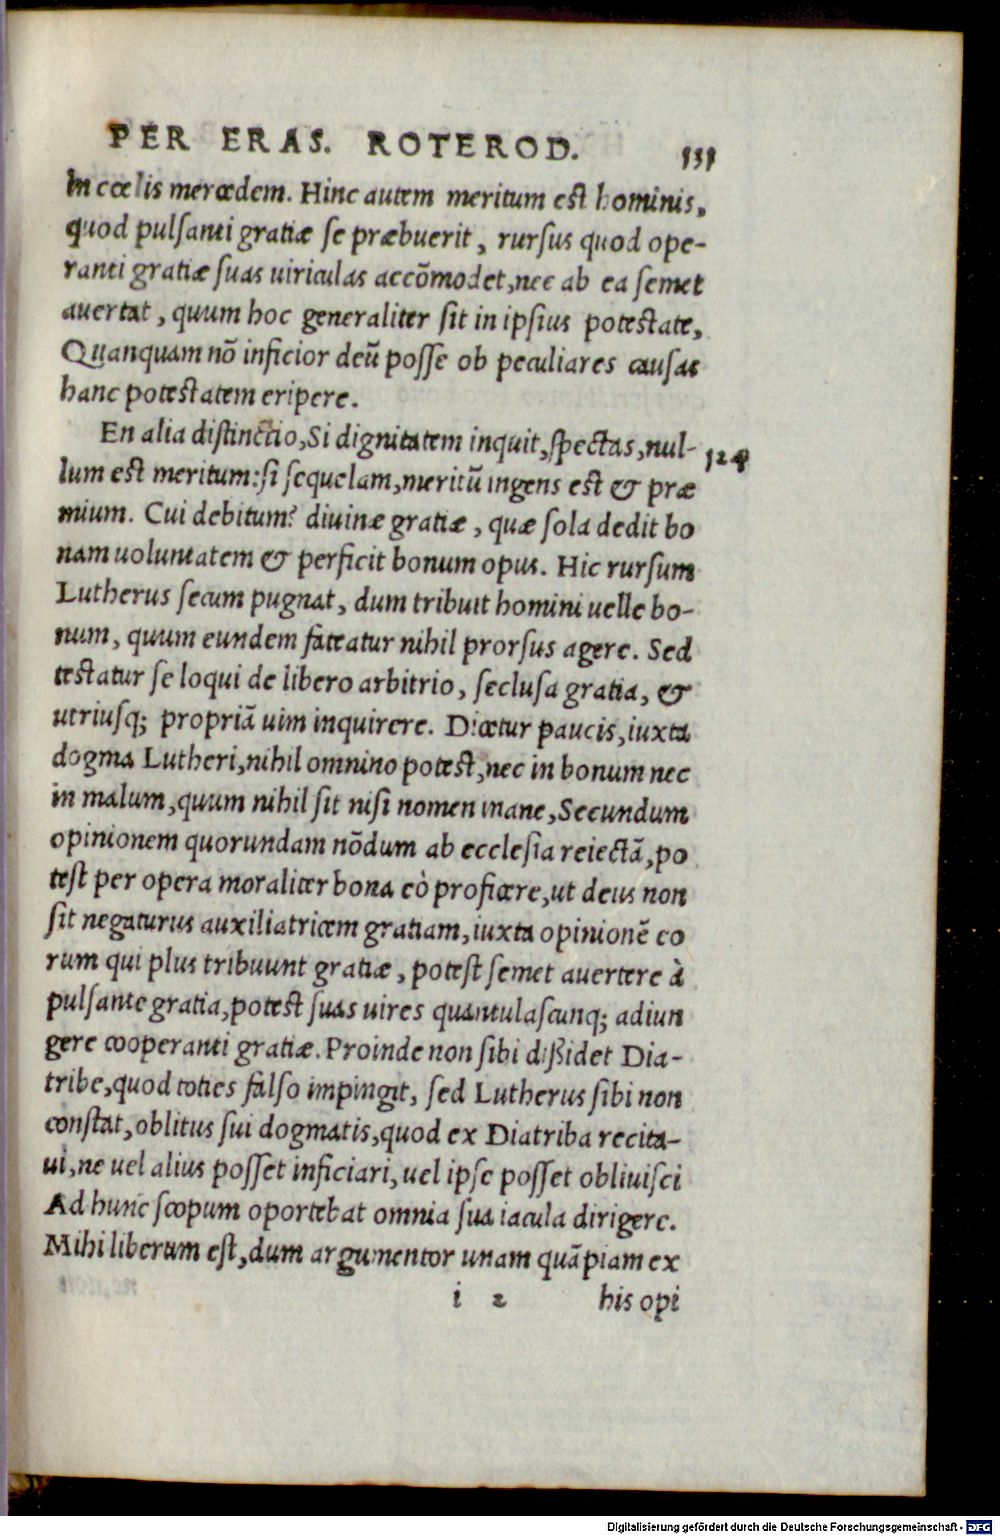 PER ERAS. ROTEROD.
131
In cœlis mercedem. Hinc autem meritum est hominis,
quod pulsanti gratiæ se præbuerit, rursus quod ope-
ranti gratiæ suas uiriculas accõmodet, nec ab ea semet
auertat, quum hoc generaliter sit in ipsius potestate,
Quanquam nõ inficior deũ posse ob peculiares causas
hanc potestatem eripere.
En alia distinctio, Si dignitatem inquit, spectas, nul-
124
lum est meritum: si sequelam, meritũ ingens est & præ
mium. Cui debitum? diuinæ gratiæ, quæ sola dedit bo
nam uoluntatem & perficit bonum opus. Hic rursum
Lutherus secum pugnat, dum tribuit homini uelle bo-
num, quum eundem fateatur nihil prorsus agere. Sed
testatur se loqui de libero arbitrio, seclusa gratia, &
utriusq; propriã uim inquirere. Dicetur paucis, iuxta
dogma Lutheri, nihil omnino potest, nec in bonum nec
in malum, quum nihil sit nisi nomen inane, Secundum
opinionem quorundam nõdum ab ecclesia reiectã, po
test per opera moraliter bona eò proficere, ut deus non
sit negaturus auxiliatricem gratiam, iuxta opinionẽ eo
rum qui plus tribuunt gratiæ, potest semet auertere à
pulsante gratia, potest suas uires quantulascunq; adiun
gere cooperanti gratiæ. Proinde non sibi dißidet Dia-
tribe, quod toties falso impingit, sed Lutherus sibi non
constat, oblitus sui dogmatis, quod ex Diatriba recita-
ui, ne uel alius posset inficiari, uel ipse posset obliuisci
Ad hunc scopum oportebat omnia sua iacula dirigere.
Mihi liberum est, dum argumentor unam quãpiam ex
i 2 his opi
Digitalisierung gefördert durch die Deutsche Forschungsgemeinschaft - DFG